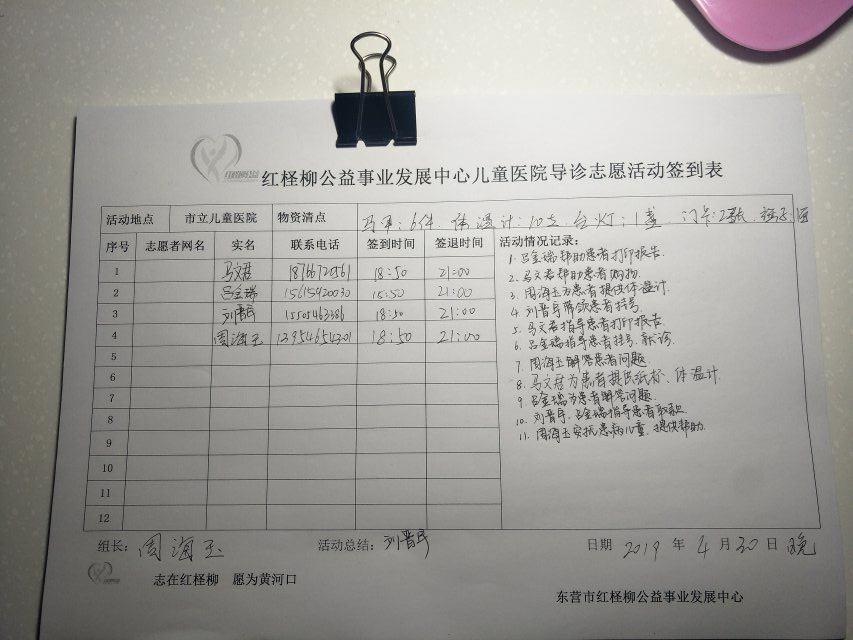 红柽柳公益事业发展中心儿童医院导诊志愿活动签到表
活动地点 市立儿童医院 物资清点 马甲:6件 体温计:10支 台灯:1盏 门卡:2张
序号 志愿者网名 实名 联系电话 签到时间 签退时间 活动情况记录:
1 马文君 18:50 21:00
2 吕金瑞 15615420030 18:50 21:00
3 刘晋民 15505463386 18:50 21:00
4 周海玉 13954654301 18:50 21:00
5
6
7
8
9
10
11
12
1. 吕金瑞帮助患者打印报告.
2. 马文君帮助患者购物.
3. 周海玉为患者提供体温计.
4. 刘晋民带领患者挂号.
5. 马文君指导患者打印报告
6. 吕金瑞指导患者挂号、就诊.
7. 周海玉解答患者问题.
8. 马文君为患者提供纸杯、体温计.
9. 吕金瑞为患者解答问题.
10. 刘晋民、吕金瑞指导患者取款.
11. 周海玉安抚患病儿童、提供帮助.
组长: 周海玉 活动总结: 刘晋民 日期 2019 年 4 月 30 日 晚
志在红柽柳 愿为黄河口
东营市红柽柳公益事业发展中心